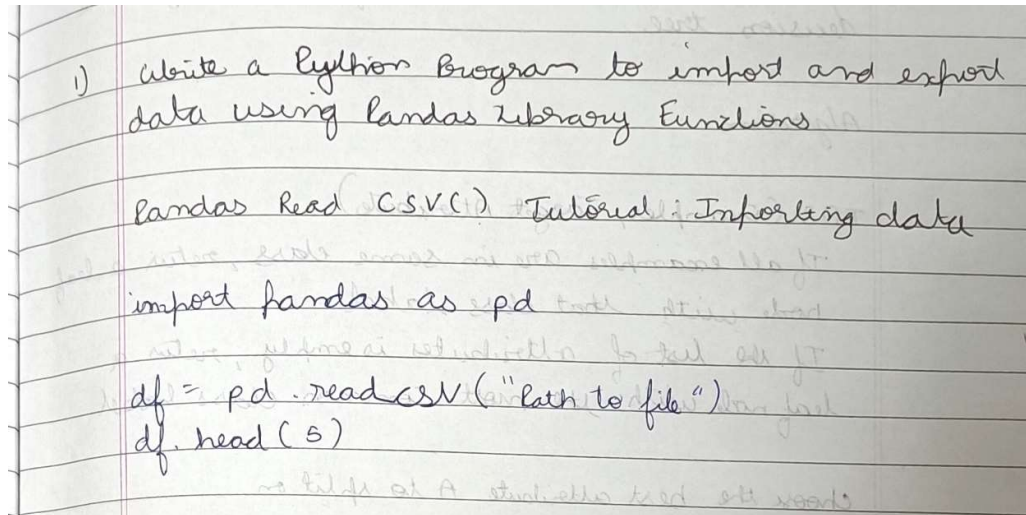 1) Write a Python Program to import and export
data using Pandas Library Functions
Pandas Read CSV() Tutorial : Importing data
import pandas as pd
df = pd.read csv ("Path to file")
df. head (5)